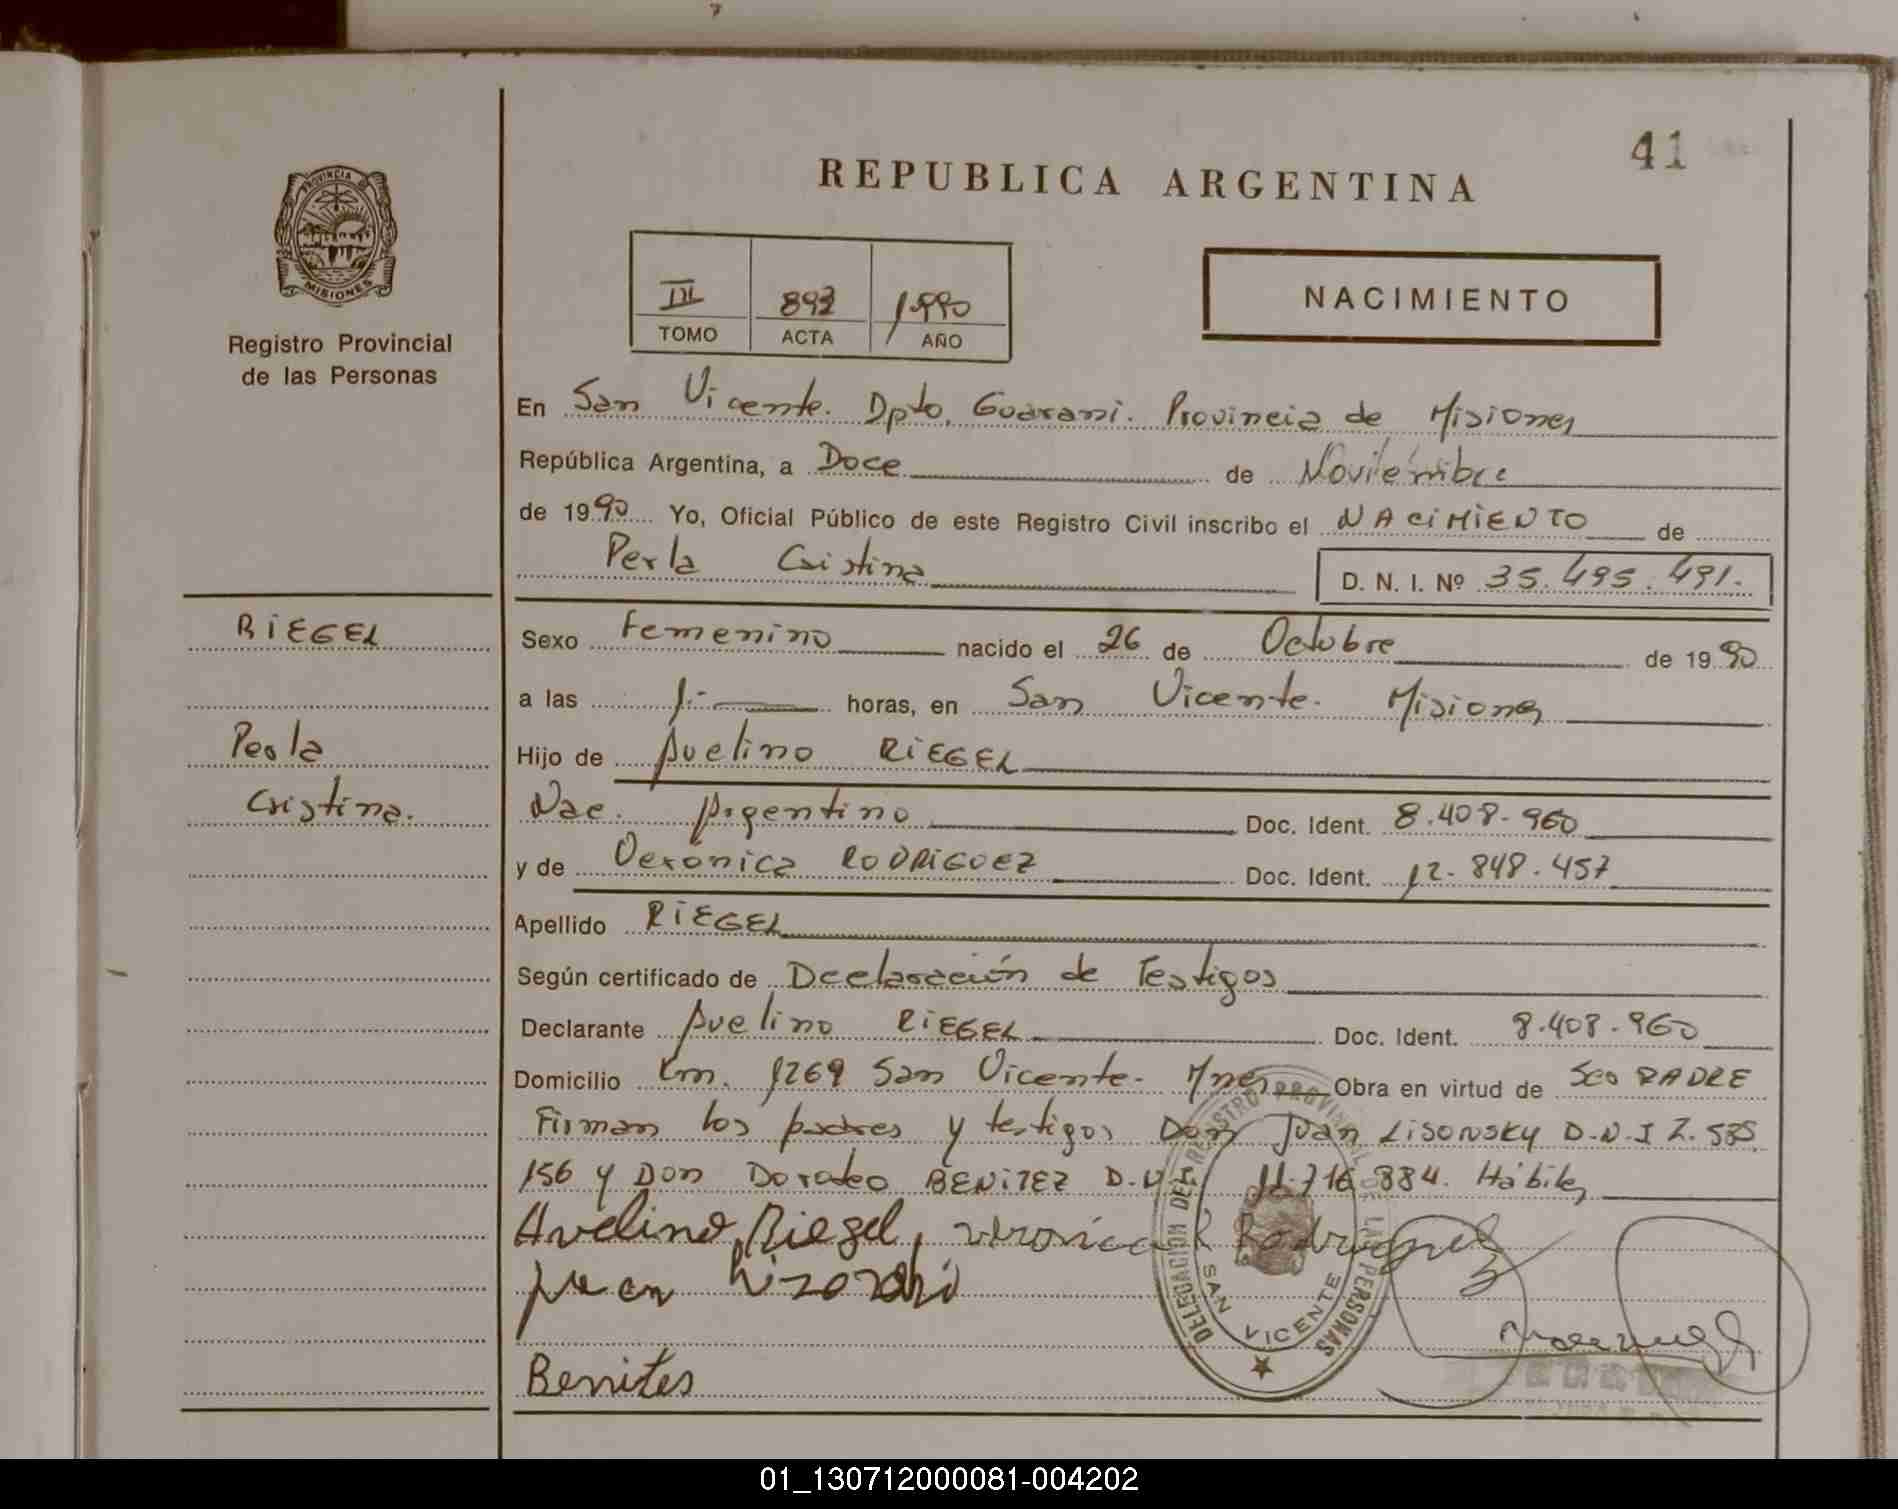 41
REPUBLICA ARGENTINA
PROVINCIA DE
MISIONES
Registro Provincial
de las Personas
III 893 1990
TOMO ACTA AÑO
NACIMIENTO
En San Vicente. Dpto, Guarani. Provincia de Misiones
República Argentina, a Doce de Noviembre
de 1990 Yo, Oficial Público de este Registro Civil inscribo el NACIMIENTO de
Perla Cristina D. N. I. Nº 35.495.491.
RIEGEL
Perla
Cristina.
Sexo Femenino nacido el 26 de Octubre de 1990
a las 1.- horas, en San Vicente. Misiones
Hijo de Avelino RIEGEL
Nac. Argentino Doc. Ident. 8.408.960
y de Veronica RODRIGUEZ Doc. Ident. 12.848.457
Apellido RIEGEL
Según certificado de Declaración de Testigos
Declarante Avelino RIEGEL Doc. Ident. 8.408.960
Domicilio Km. 1269 San Vicente. Mnes Obra en virtud de Seo PADRE
Firman los padres y testigos Don Juan LISONSKY D.N.I 7.585
156 y Don Doroteo BENITEZ D.N 11.716.884. Hábiles
Avelino Riegel, veronica R Rodriguez
juan
Benites
DELEGACION DEL REGISTRO PROVINCIAL DE LAS PERSONAS
SAN VICENTE
01_130712000081-004202